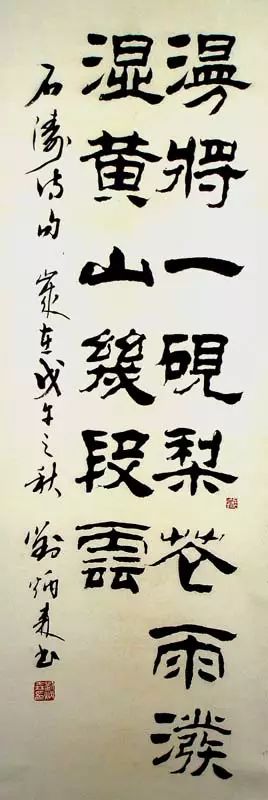 漫將一硯梨花雨潑
湿黄山幾段雲
石濤诗句 歲在戊午之秋 劉炳森书